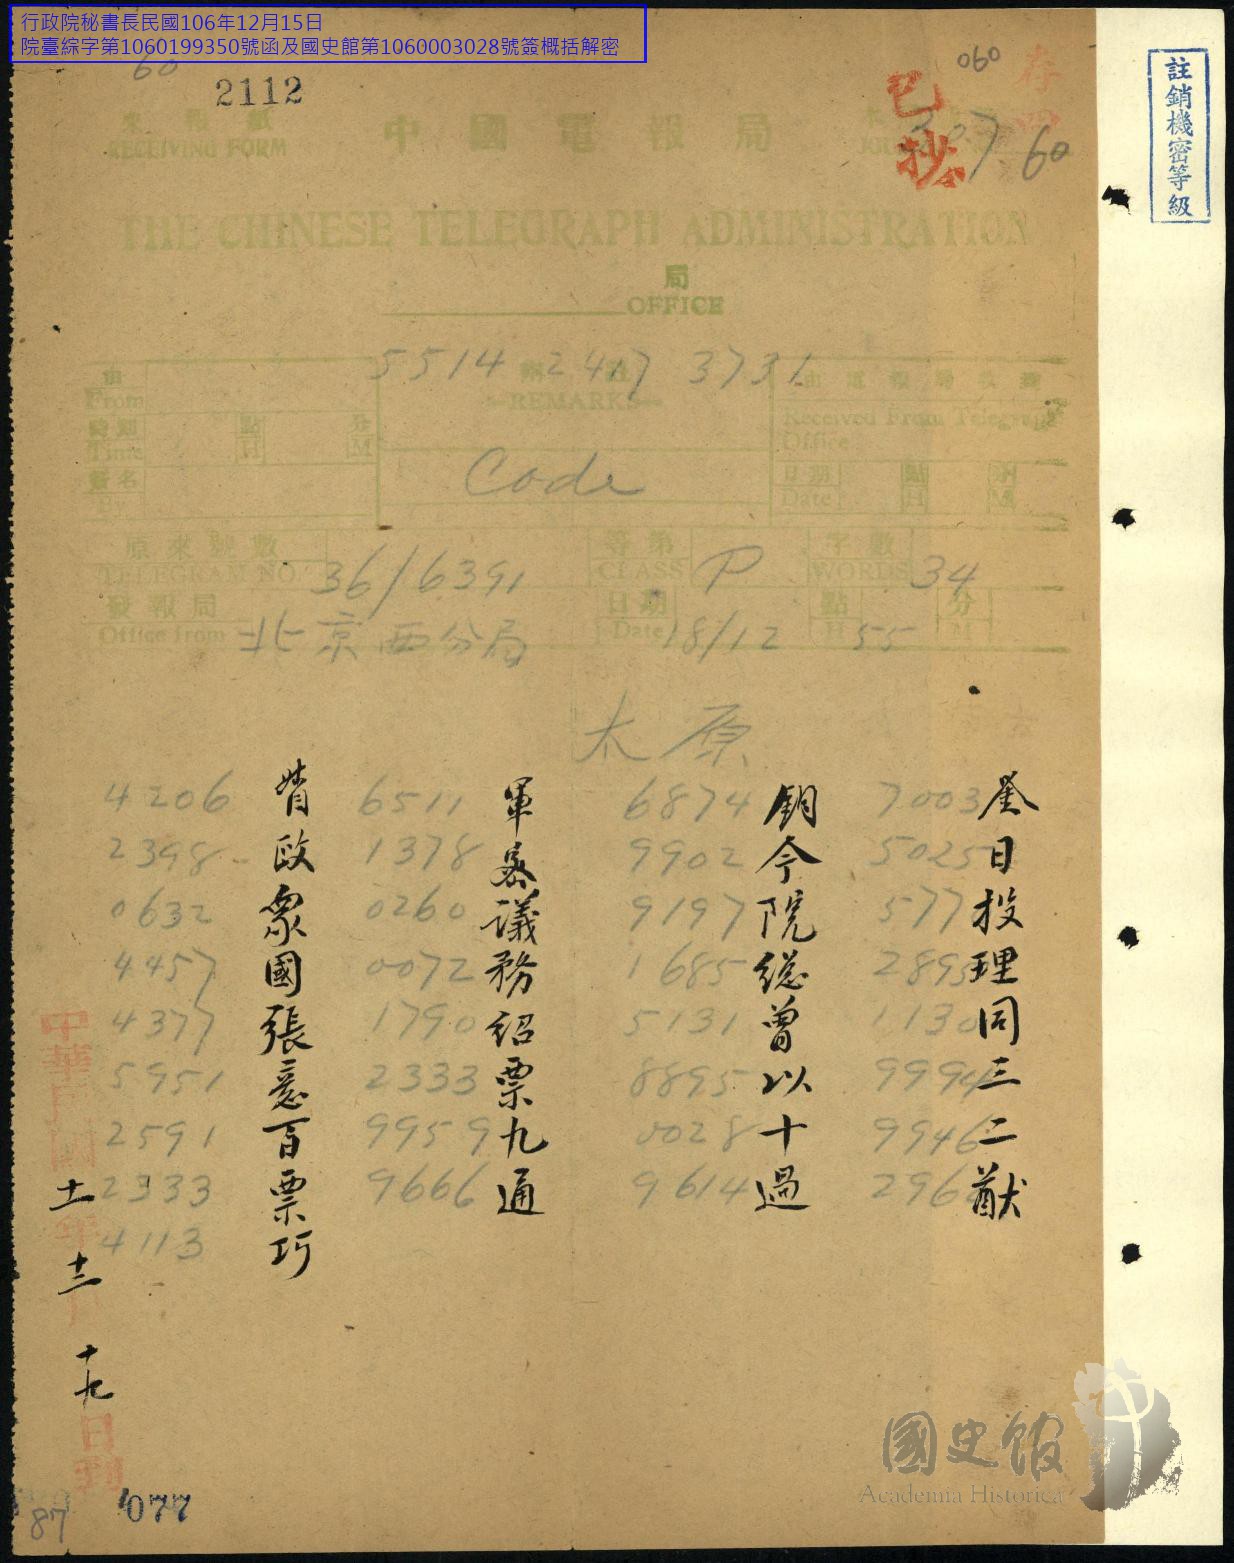 行政院秘書長民國106年12月15日
院臺綜字第1060199350號函及國史館第1060003028號簽概括解密
註銷機密等級
60
2112
060
存
已抄
307 60
來報紙
RECEIVING FORM
中國電報局
THE CHINESE TELEGRAPH ADMINISTRATION
局
OFFICE
5514 2417 3731
由
From
時刻
Time
點
H
分
M
簽名
By
附註
—REMARKS—
Code
由電報局收到
Received From Telegraph
Office
日期
Date
點
H
分
M
原來號數
TELEGRAM NO.
36/6391
等第
CLASS
P
字數
WORDS
34
發報局
Office from
北京西分局
日期
Date
18/12
點
H
55
分
M
太原
7003 5025 577 2895 1130 9994 9946 296
日投理同三二猷
6874 9902 9197 1685 5131 8895 0028 9614
鈅今院總曾以十過
6511 1378 0260 0072 1790 2333 9959 9666
軍暴議務紹票九通
4206 2398 0632 4457 4377 5951 2591 2333 4113
督政眾國張意百票巧
中華民國十一年十二月十九日到
077
87
國史館
Academia Historica